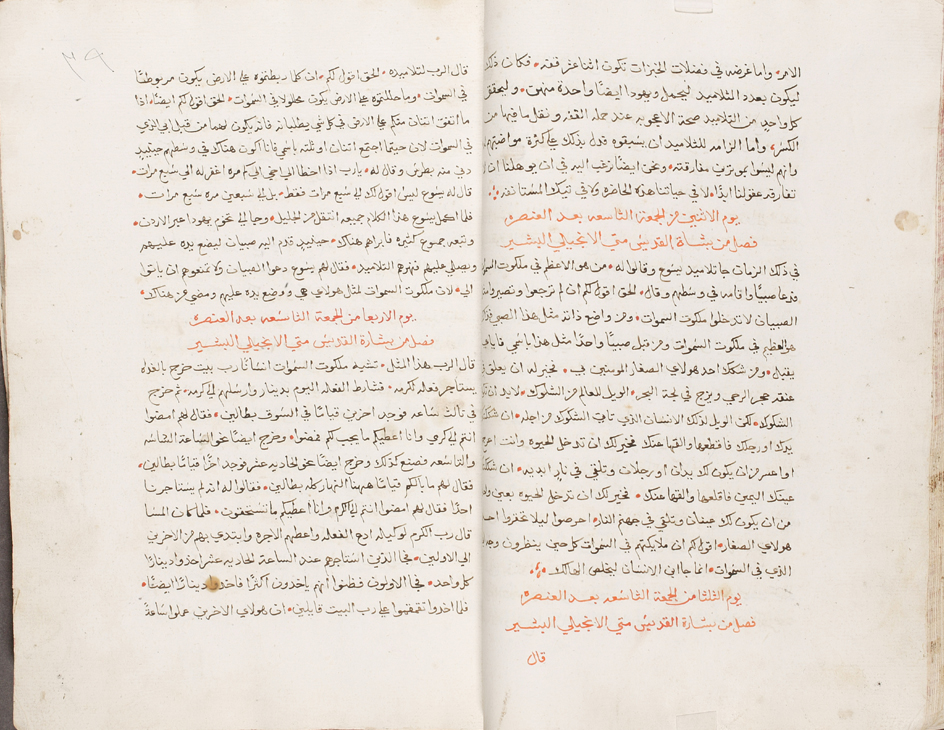 الامر، واما غرضه في فضلات الخبزات تكون اثنا عشر قفه، فكان ذلك
ليكون بعدد التلاميد ليحمل ويهودا ايضًا واحدة منهن، وليحقق
كل واحدٍ من التلاميد صحة الاعجوبه عند حمله القفه ونقل ما فيها من
الكسر، واما الزامه للتلاميد ان يسبقوه فدل بذلك علي كثرة مواضبتهم
وانهم ليسوا بموترين مفارقته، ونحن ايضًا نرغب اليه في ان يوهلنا ان لا
تفارقه عقولنا ابدًا، لا في حياتنا هذه الحاضره ولا في تيك المستانفه
يوم الاثنين من الجمعة التاسعه بعد العنصره
فصل من بشارة القديس متي الانجيلي البشير
في ذلك الزمان جا تلاميد يسوع وقالوا له، من هو الاعظم في ملكوت السموا
فدعا صبيًا واقامه في وسطهم وقال، الحق اقول لكم ان لم ترجعوا وتصيروا مثل
الصبيان لا تدخلوا ملكوت السموات، ومن واضع ذاته مثل هذا الصبي فذا
هو العظيم في ملكوت السموات ومن قبل صبيًا واحدًا مثل هذا باسمي فاياي
يقبل، ومن شكك احد هولاي الصغار المومنين بي، فخير له ان يعلق في
عنقه حجر الرحي ويزج في لجة البحر، الويل للعالم من الشكوك، لابد ان تاتي
الشكوك، لكن الويل لذلك الانسان الذي تاتي الشكوك من اجله، ان شككتك
يدك او رجلك فاقطعها والقها عنك، فخير لك ان تدخل الحيوه وانت اعرج
او اعسر من ان يكون لك يدان او رجلان وتلقي في نار الابديه، ان شككتك
عينك اليمين فاقلعها والقها عنك، فخير لك ان تدخل الحيوه بعين واحده
من ان يكون لك عينان وتلقي في جهنم النار، احرصوا ليلا تحقروا احد
هولاي الصغار، اقول لكم ان ملايكتهم في السموات كل حين ينظرون وجه ابي
الذي في السموات، انما جا ابن الانسان ليخلص الهالك
يوم الثلثا من الجمعة التاسعه بعد العنصره
فصل من بشارة القديس متي الانجيلي البشير
قال
٣٩
قال الرب لتلاميذه، الحق اقول لكم، ان كلما ربطتموه علي الارض يكون مربوطًا
في السموات، وما حللتموه علي الارض يكون محلولا في السموات، الحق اقول لكم ايضًا، اذا
ما اتفق اتنان منكم علي الارض في كل شي يطلبانه فانه يكون لهما من قبل ابي الذي
في السموات لان حيتما اجتمع اتنان او ثلثه باسمي فانا اكون هناك في وسطهم حينيدٍ
دني منه بطرس وقال له، يارب اذا اخطا الي اخي الي كم مره اغفر له الي سبع مرات،
قال له يسوع ليس اقول لك الي سبع مرات فقط، بل الي سبعين مره سبع مرات،
فلما اكمل يسوع هذا الكلام جميعه انتقل من الجليل، وجا الي تخوم يهودا عبر الاردن،
وتبعه جموع كثيره فابراهم هناك، حينيدٍ قدم اليه صبيان ليضع يده عليهم
ويصلي عليهم فنهرهم التلاميد، فقال لهم يسوع دعوا الصبيان ولا تمنعوهم ان ياتوا
الي، لان ملكوت السموات لمثل هولاي هي ووضع يده عليهم ومضي من هناك،
يوم الاربعا من الجمعة التاسعه بعد العنصره
فصل من بشارة القديس متي الانجيلي البشير
قال الرب هذا المثل، تشبه ملكوت السموات انسانًا رب بيت خرج بالغداه
يستاجر فعله لكرمه، فشارط الفعله اليوم بدينار وارسلهم الي كرمه، ثم خرج
في تالث ساعه فوجد اخرين قيامًا في السوق بطالين، فقال لهم امضوا
انتم الي كرمي وانا اعطيكم ما يجب لكم فمضوا، وخرج ايضًا نحو الساعة السادسه
والتاسعه فصنع كذلك وخرج ايضًا نحو الحاديه عشر فوجد اخرًا قيامًا بطالين،
فقال لهم ما بالكم قيامًا ههنا النهار كله بطالين، فقالوا له انه لم يستاجرنا
احدًا فقال لهم امضوا انتم الي الكرم وانا اعطيكم ما تستحقون، فلما كان المسا
قال رب الكرم لوكيله ادع الفعله واعطهم الاجره وابتدي بهم من الاخرين
الي الاولين، فجا الذين استاجرهم عند الساعة الحاديه عشر اخذوا دينارًا
كل واحد، فجا الاولون فظنوا انهم ياخدون اكثرًا فاخدوا دينارًا ايضًا،
فلما اخدوا تقمقموا علي رب البيت قايلين، ان هولاي الاخرين عملوا ساعةً